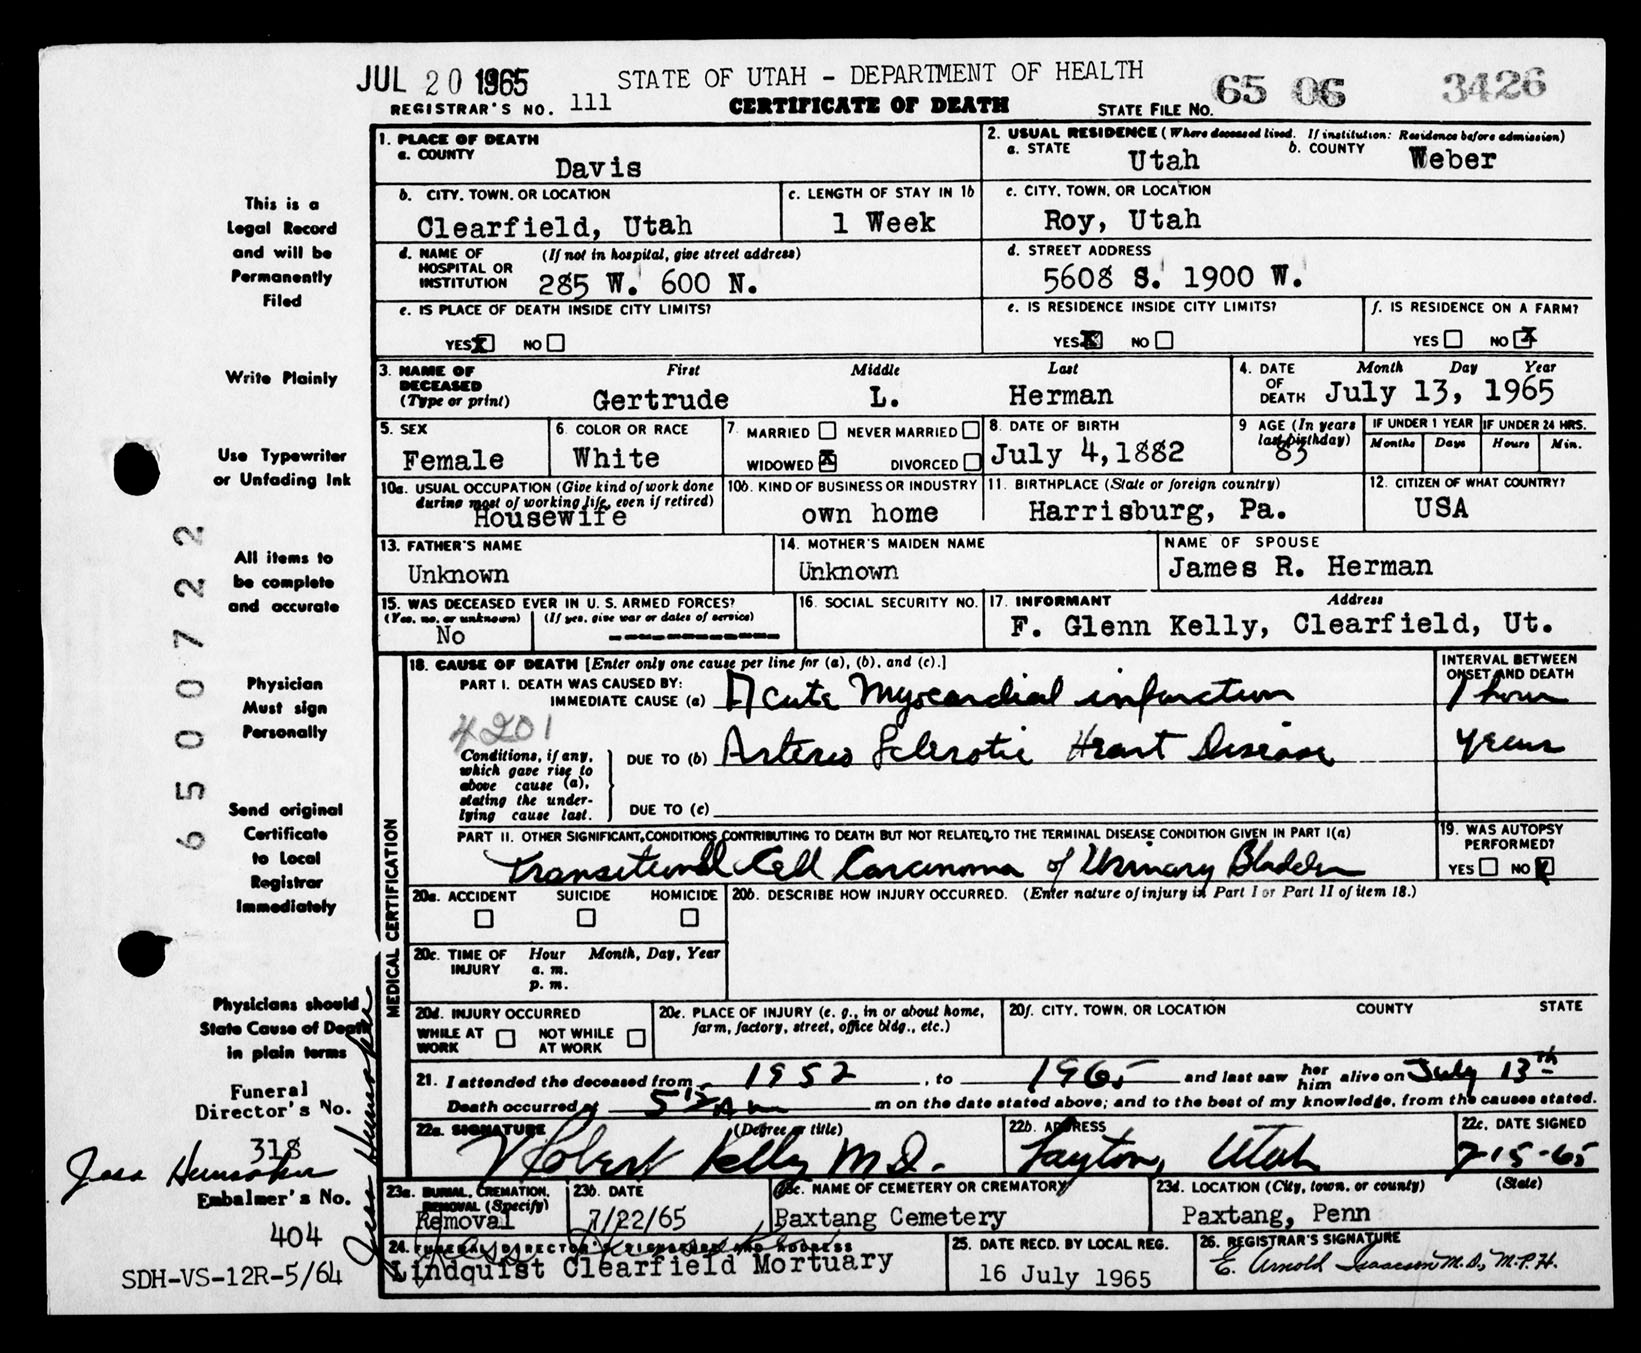 JUL 20 1965
STATE OF UTAH - DEPARTMENT OF HEALTH
65 06 3426
REGISTRAR'S NO. 111
CERTIFICATE OF DEATH
STATE FILE NO.
1. PLACE OF DEATH
a. COUNTY
Davis
2. USUAL RESIDENCE (Where deceased lived. If institution: Residence before admission)
a. STATE Utah b. COUNTY Weber
b. CITY, TOWN, OR LOCATION
Clearfield, Utah
c. LENGTH OF STAY IN 1b
1 Week
c. CITY, TOWN, OR LOCATION
Roy, Utah
d. NAME OF HOSPITAL OR INSTITUTION (If not in hospital, give street address)
285 W. 600 N.
d. STREET ADDRESS
5608 S. 1900 W.
e. IS PLACE OF DEATH INSIDE CITY LIMITS?
YES X NO
e. IS RESIDENCE INSIDE CITY LIMITS?
YES X NO
f. IS RESIDENCE ON A FARM?
YES NO X
3. NAME OF DECEASED (Type or print)
First Middle Last
Gertrude L. Herman
4. DATE OF DEATH Month Day Year
July 13, 1965
5. SEX
Female
6. COLOR OR RACE
White
7. MARRIED NEVER MARRIED
WIDOWED X DIVORCED
8. DATE OF BIRTH
July 4, 1882
9 AGE (In years last birthday)
83
IF UNDER 1 YEAR IF UNDER 24 HRS.
Months Days Hours Min.
10a. USUAL OCCUPATION (Give kind of work done during most of working life, even if retired)
Housewife
10b. KIND OF BUSINESS OR INDUSTRY
own home
11. BIRTHPLACE (State or foreign country)
Harrisburg, Pa.
12. CITIZEN OF WHAT COUNTRY?
USA
13. FATHER'S NAME
Unknown
14. MOTHER'S MAIDEN NAME
Unknown
NAME OF SPOUSE
James R. Herman
15. WAS DECEASED EVER IN U. S. ARMED FORCES?
(Yes, no, or unknown) (If yes, give war or dates of service)
No ----------
16. SOCIAL SECURITY NO.
17. INFORMANT Address
F. Glenn Kelly, Clearfield, Ut.
MEDICAL CERTIFICATION
18. CAUSE OF DEATH [Enter only one cause per line for (a), (b), and (c).]
INTERVAL BETWEEN ONSET AND DEATH
PART I. DEATH WAS CAUSED BY:
IMMEDIATE CAUSE (a) Acute Myocardial infarction 1 hour
4201
Conditions, if any, which gave rise to above cause (a), stating the underlying cause last.
DUE TO (b) Arterio Sclerotic Heart Disease years
DUE TO (c)
PART II. OTHER SIGNIFICANT CONDITIONS CONTRIBUTING TO DEATH BUT NOT RELATED TO THE TERMINAL DISEASE CONDITION GIVEN IN PART I(a)
Transitional Cell Carcinoma of Urinary Bladder
19. WAS AUTOPSY PERFORMED?
YES NO X
20a. ACCIDENT SUICIDE HOMICIDE
20b. DESCRIBE HOW INJURY OCCURRED. (Enter nature of injury in Part I or Part II of item 18.)
20c. TIME OF INJURY Hour Month, Day, Year
a. m.
p. m.
20d. INJURY OCCURRED
WHILE AT WORK NOT WHILE AT WORK
20e. PLACE OF INJURY (e. g., in or about home, farm, factory, street, office bldg., etc.)
20f. CITY, TOWN, OR LOCATION COUNTY STATE
21. I attended the deceased from 1952, to 1965 and last saw her him alive on July 13th
Death occurred at 5 15 Am m on the date stated above; and to the best of my knowledge, from the causes stated.
22a. SIGNATURE (Degree or title)
Robert Kelly M D.
22b. ADDRESS
Layton, Utah
22c. DATE SIGNED
7-15-65
23a. BURIAL, CREMATION, REMOVAL (Specify)
Removal
23b. DATE
7/22/65
23c. NAME OF CEMETERY OR CREMATORY
Baxtang Cemetery
23d. LOCATION (City, town, or county) (State)
Paxtang, Penn
24. FUNERAL DIRECTOR'S SIGNATURE AND ADDRESS
Lindquist Clearfield Mortuary
25. DATE RECD. BY LOCAL REG.
16 July 1965
26. REGISTRAR'S SIGNATURE
E. Arnold Isaacson M.D., M.P.H.
This is a
Legal Record
and will be
Permanently
Filed
Write Plainly
Use Typewriter
or Unfading Ink
All items to
be complete
and accurate
Physician
Must sign
Personally
Send original
Certificate
to Local
Registrar
Immediately
Physicians should
State Cause of Death
in plain terms
Funeral
Director's No.
318
Jess Hunsaker
Embalmer's No.
404
Jess Hunsaker
SDH-VS-12R-5/64
650000722